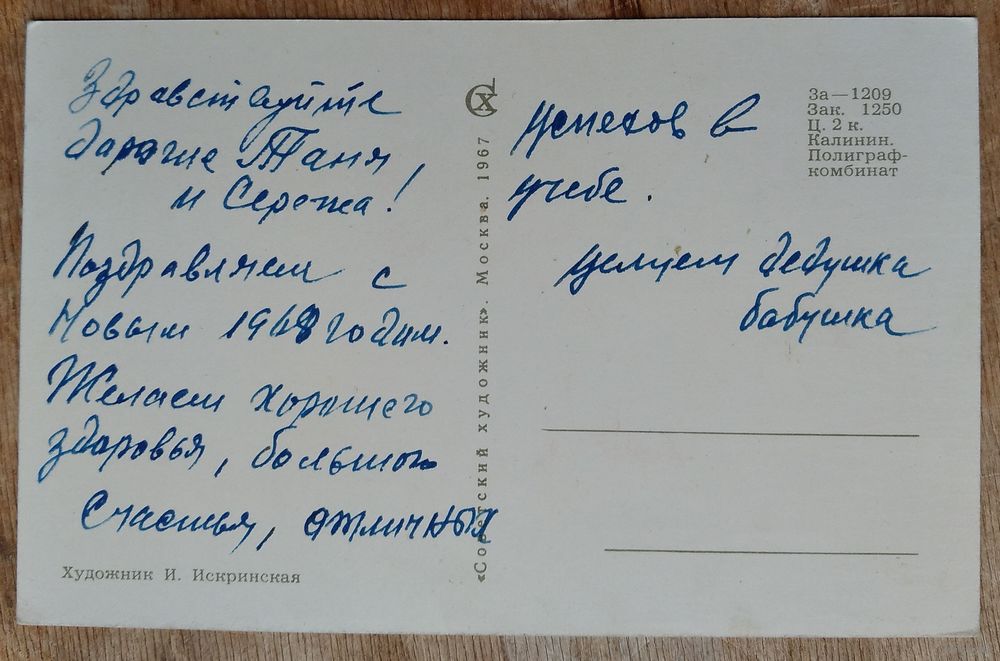 Здравствуйте
дарагие Таня,
и Сережа!
Поздравляем с
Новым 1968 годом.
Желаем хорошего
здоровья, большого
счастья, отличных
Художник И. Искринская
«Советский художник». Москва. 1967
СХ
успехов в
учебе.
целуем дедушка
бабушка
За—1209
Зак. 1250
Ц. 2 к.
Калинин.
Полиграф-
комбинат